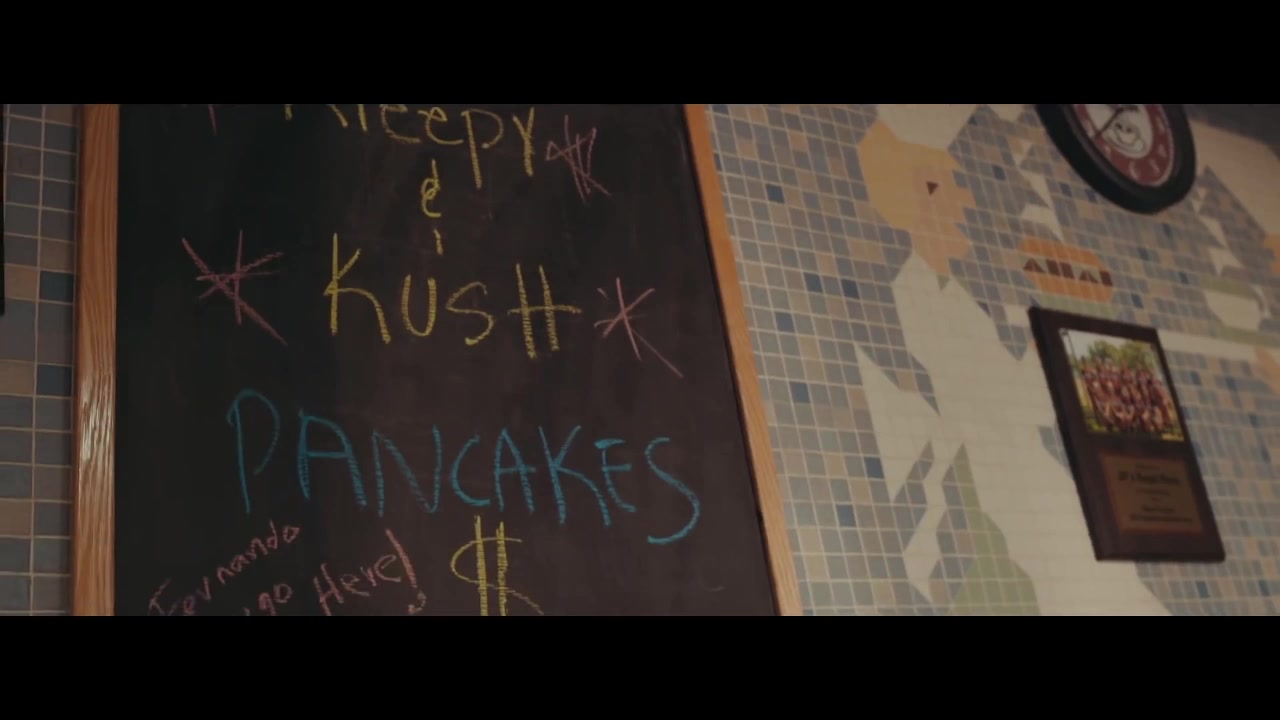 Kleepy
&
KUSH
PANCAKES
Fernando
go Here!
$